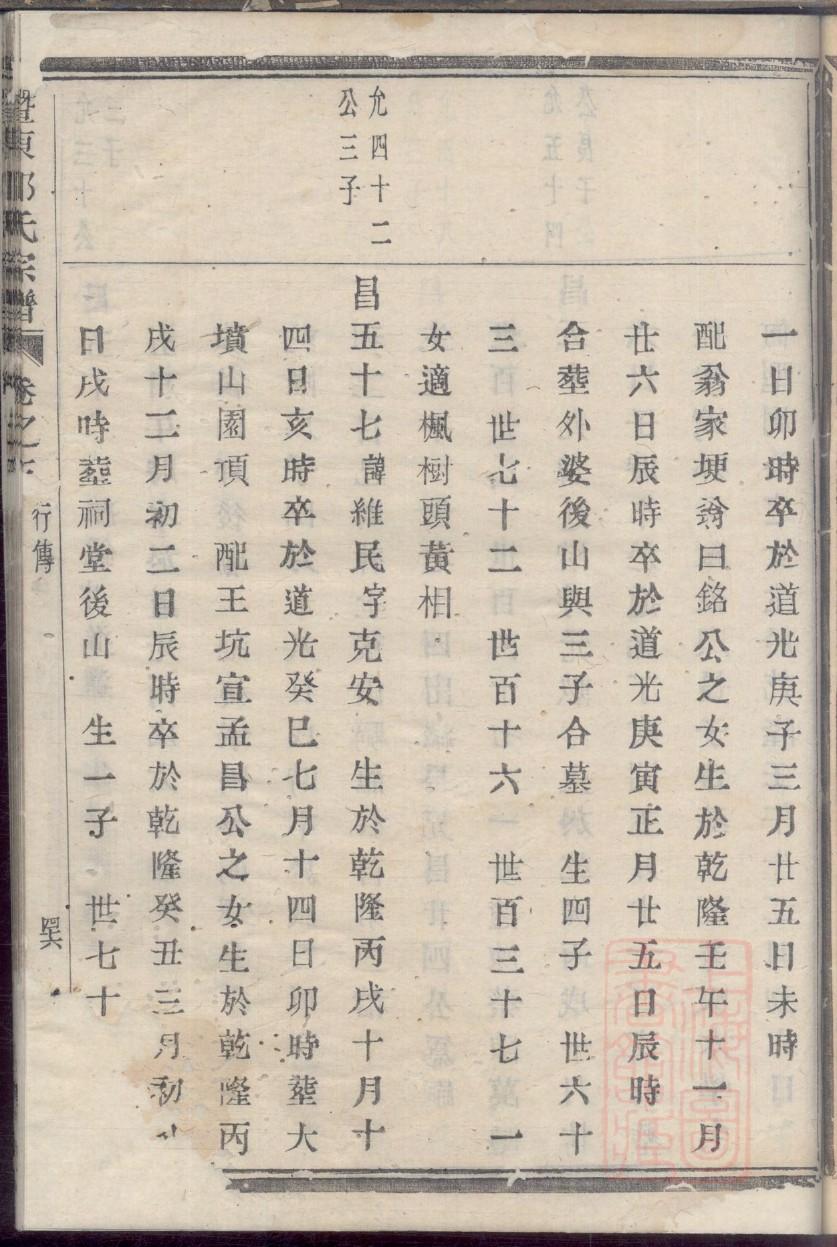 一日卯時卒於道光庚子三月廿五日未時
配翁家埂翁曰銘公之女生於乾隆壬午十一月
廿六日辰時卒於道光庚寅正月廿五日辰時
合塟外婆後山與三子合墓 生四子 世六十
三百 世七十二 世百十六 世百三十七 一
女適楓樹頭黃相
允四十二
公三子
昌五十七諱維民字克安 生於乾隆丙戌十月十
四日亥時卒於道光癸巳七月十四日卯時塟大
墳山園頂 配王坑宣孟昌公之女生於乾隆丙
戌十二月初二日辰時卒於乾隆癸丑三月初
日戌時塟祠堂後山 生一子 世七十
氏宗譜 卷之 行傳